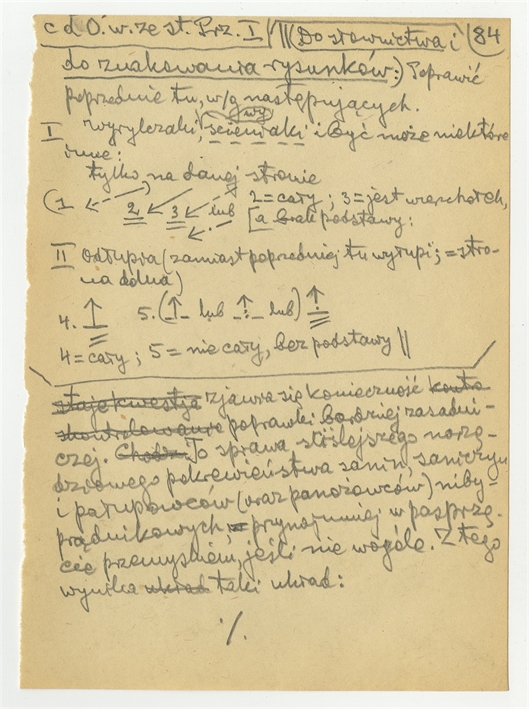 c d O. w. ze st. Prz. I ||| (Do słownictwa i 84
do znakowania rysunków:) Poprawić
poprzednie tu, w/g następujących.
I wyrylczaki, i być może niektóre
inne:
tylko na danej stronie
(1 2 3 lub 2 = cały; 3 = jest wierzchołek,
[a brak podstawy:
II Odłupia (zamiast poprzedniej tu wyłupi; = stro-
na dolna)
4. ↑ 5. (↑ lub ↑ lub) ↑
4 = cały; 5 = nie cały, bez podstawy ||
staje kwestja zjawia się konieczność
poprawki bardziej zasadni-
czej. Chodzi To sprawa ściślejszego narzę-
dziowego pokrewieństwa
i (oraz panożowców) niby-
prądnikowych, = przynajmniej w
cie przemyskiem, jeśli nie wogóle. Z tego
wynika układ taki układ:
./.